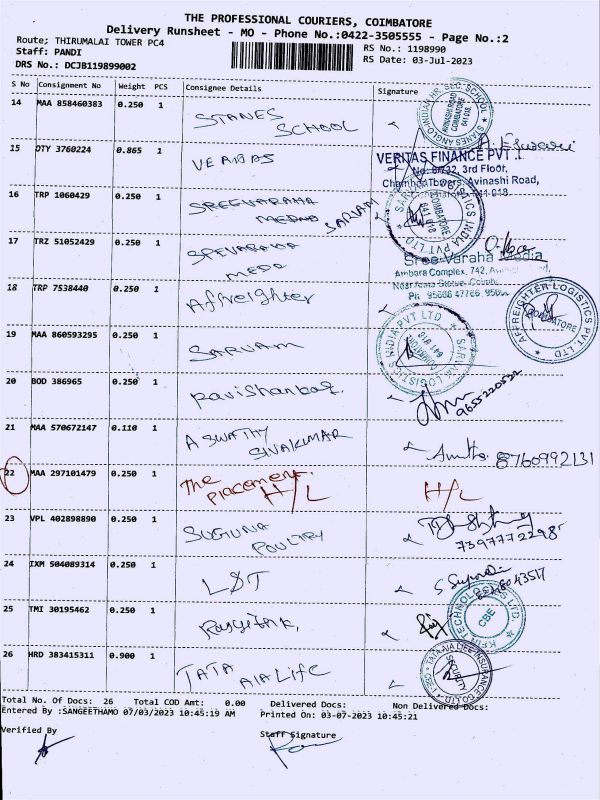 THE PROFESSIONAL COURIERS, COIMBATORE
Delivery Runsheet - MO - Phone No.:0422-3505555 - Page No.:2
Route; THIRUMALAI TOWER PC4
RS No.: 1198990
Staff: PANDI
RS Date: 03-Jul-2023
DRS No.: DCJB119899002
S No Consignment No Weight PCS Consignee Details Signature
14 MAA 858460383 0.250 1 STANES SCHOOL
STANES ANGLO-INDIAN HR. SEC. SCHOOL AVINASHI ROAD COIMBATORE 641 018
15 DTY 3760224 0.865 1
VERITAS FINANCE PVT
3rd Floor,
Towers, Avinashi Road,
641 018
16 TRP 1060429 0.250 1 SREEVARAHA SARVAM
SARVAM LOGISTICS INDIA PVT LTD COIMBATORE 641 018
17 TRZ 51052429 0.250 1
Sree Varaha Media
Ambara Complex, 742,
18 TRP 7538440 0.250 1 Affreighter
AFFREIGHTER LOGISTICS PVT LTD COIMBATORE
19 MAA 860593295 0.250 1 SARVAM
SARVAM LOGISTICS INDIA PVT LTD 641 018
20 BOD 386965 0.250 1
9655220532
21 MAA 570672147 0.110 1 ASWATHY SIVAKUMAR
8760992131
22 MAA 297101479 0.250 1 The placement. H/L H/L
23 VPL 402898890 0.250 1 SUGUNA POULTRY
7397772298
24 IXM 504089314 0.250 1 L&T
25 TMI 30195462 0.250 1
TECHNOLOGIES LTD. CBE
26 HRD 383415311 0.900 1 TATA AIA Life
TATA AIA LIFE INSURANCE CO LTD SECURITY
Total No. Of Docs: 26 Total COD Amt: 0.00 Delivered Docs: Non Delivered Docs:
Entered By :SANGEETHAMO 07/03/2023 10:45:19 AM Printed On: 03-07-2023 10:45:21
Verified By
Staff Signature